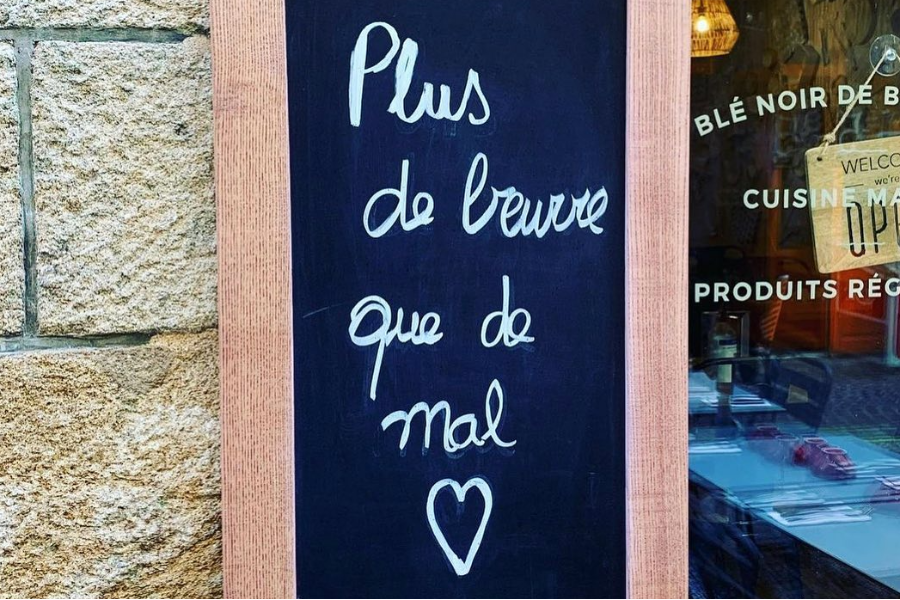 Plus
de beurre
que de
mal
BLÉ NOIR DE
WELCO
we're
CUISINE
OP
PRODUITS